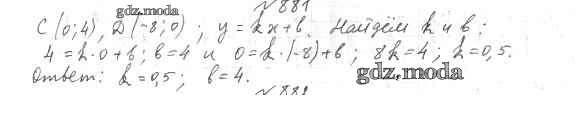 № 881
gdz.moda
C (0; 4), D (-8; 0) ; y = kx + b. Найдём k и b :
4 = k · 0 + b ; b = 4 и 0 = k · (-8) + b ; 8k = 4 ; k = 0,5.
Ответ: k = 0,5 ; b = 4.
gdz.moda
№ 882